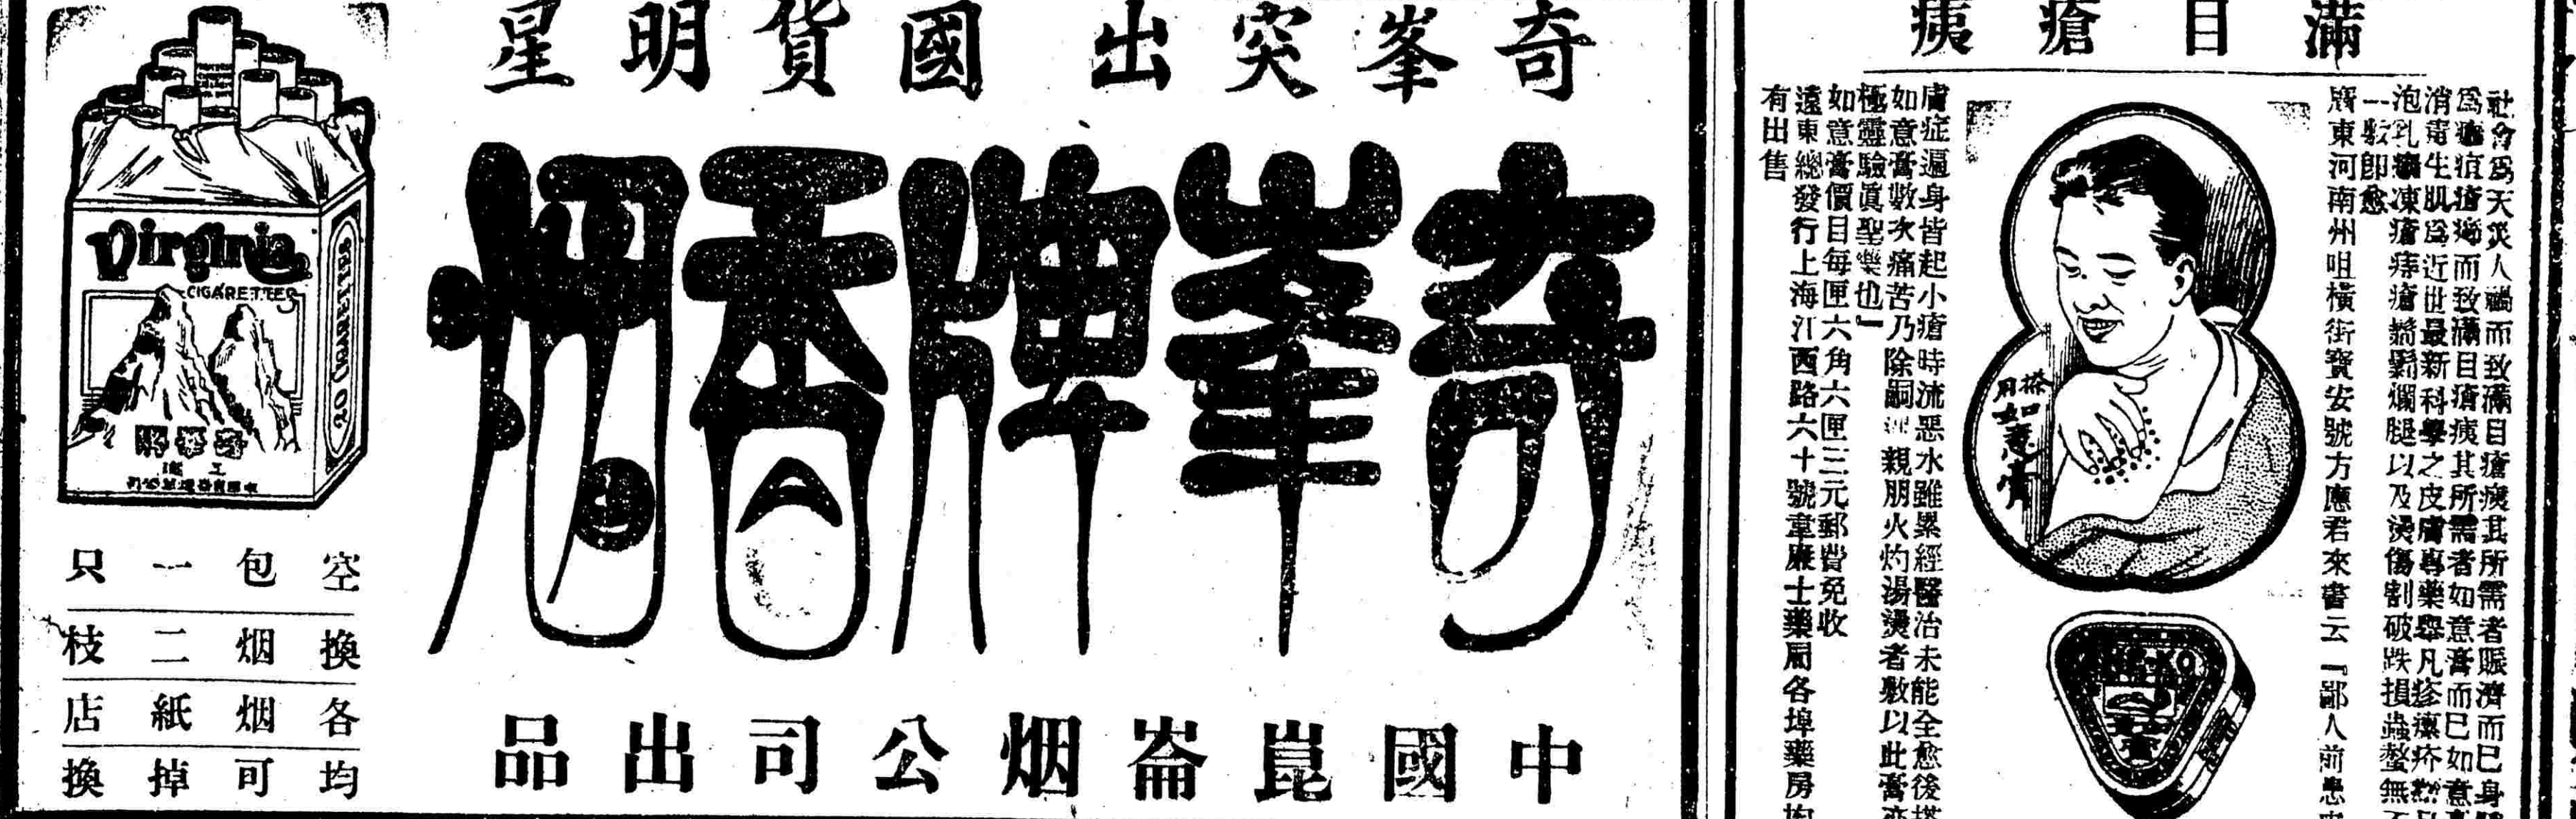 滿目瘡痍
社會爲天災人禍而致滿目瘡痍其所需者賑濟而已身
爲瘡疽瘡瘍而致滿目瘡痍其所需者如意膏而已如意
消毒生肌爲近世最新科學之皮膚專藥舉凡疹癋疥
泡乳癰凍瘡痔瘡爛腿以及燙傷割破跌損蟲螫無不
一敷卽愈
廣東河南州咀橫街寶安號方應君來書云『鄙人前患
膚症遍身皆起小瘡時流惡水雖累經醫治未能全愈後搽
如意膏數次痛苦乃除嗣 親朋火灼湯燙者敷以此膏亦
極靈驗眞聖藥也』
如意膏價目每匣六角六匣三元郵費免收
遠東總發行上海江西路六十號韋廉士藥局各埠藥房均
有出售
搽用如意膏
奇峯突出 國貨明星
奇峯牌香烟
中國崑崙烟公司出品
Virginia
CIGARETTES
20 CIGARETTES
奇峯牌
空包一只
換烟二枝
各烟紙店
均可掉換